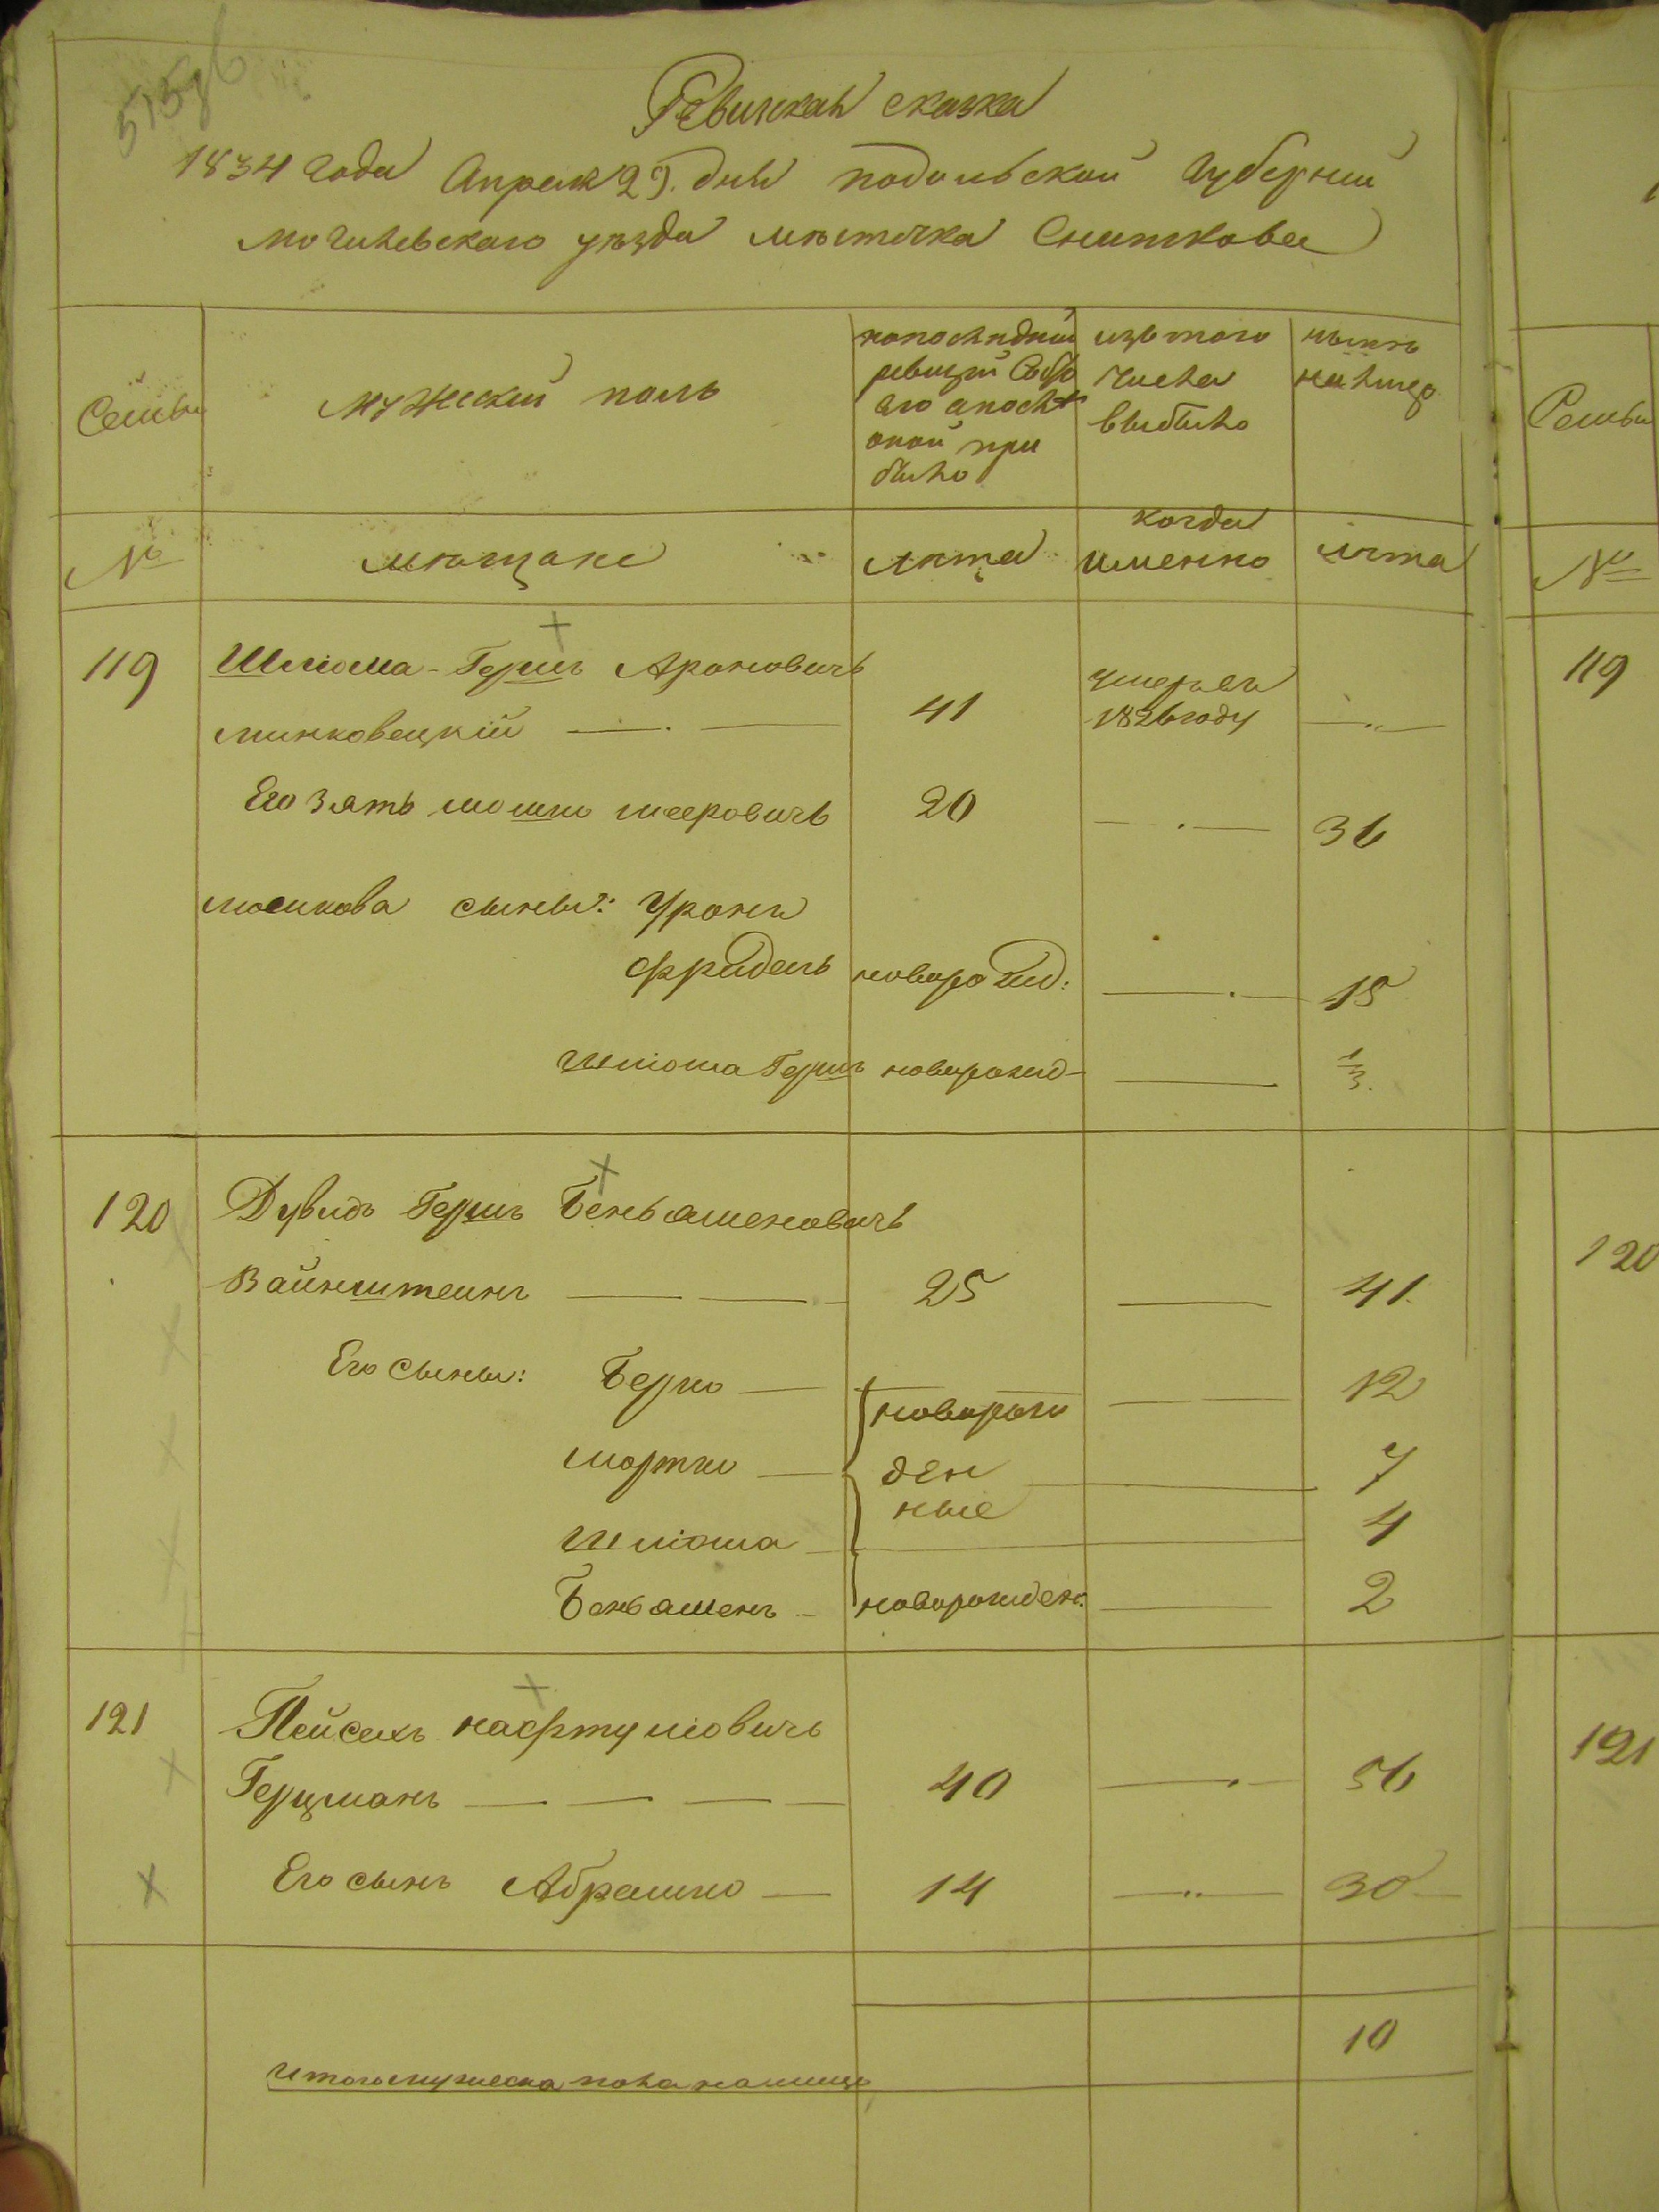 515 об
Ревижкая сказка
1834 года Апреля 29. дня подольской Губернии
могилевского уезда мѣстечка Сниткова
Семьи
мужеский полъ
попоследней
ревизии Состо
яло и после
оной при
было
изъ того
числа
выбыло
нынѣ
на лицо
Семьи
№
мѣщане
лѣта
когда
именно
лѣта
№
119
Шлiома-Гершъ Ароновичъ
минковецкій
41
умеръ въ
1826 году
119
Его Зять мошко мееровичъ
20
36
мошкова сыны: Уронъ
Фридель
новорожд:
15
Шлiома Гершъ
новорожд-
1/3.
120
Дувидъ Гершъ Беньаменовичъ
Вайнштеинъ
25
41.
120
Его сыны:
Берко
новорож
12
мортко
ден
7
ные
Шлiома
4
Беньаменъ
новорожден:
2
121
Пейсахъ нафтулiовичъ
Герцманъ
40
56
121
Его сынъ Абрашко
14
30
10
Итого мужеска пола налицо